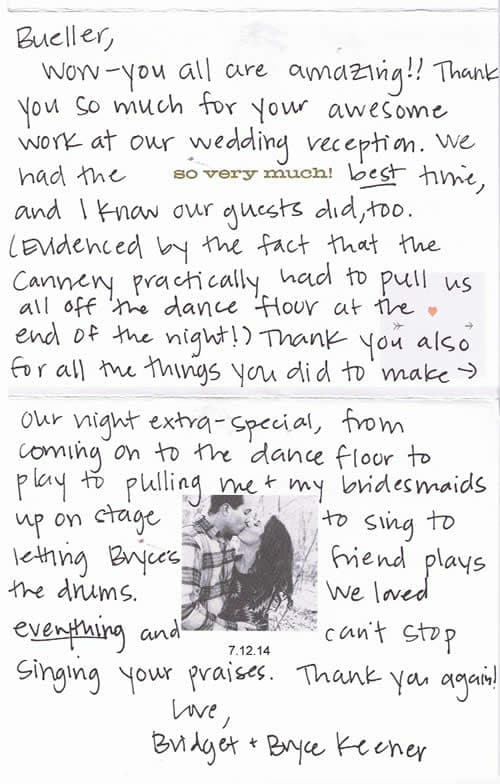 Bueller,
Wow-you all are amazing!! Thank
you so much for your awesome
work at our wedding reception. We
had the so very much! best time,
and I know our guests did, too.
(Evidenced by the fact that the
Cannery practically had to pull us
all off the dance floor at the
end of the night!) Thank you also
for all the things you did to make →
our night extra-special, from
coming on to the dance floor to
play to pulling me + my bridesmaids
up on stage to sing to
letting Bryce's friend plays
the drums. We loved
everything and can't stop
7.12.14
singing your praises. Thank you again!
Love,
Bridget + Bryce Keener